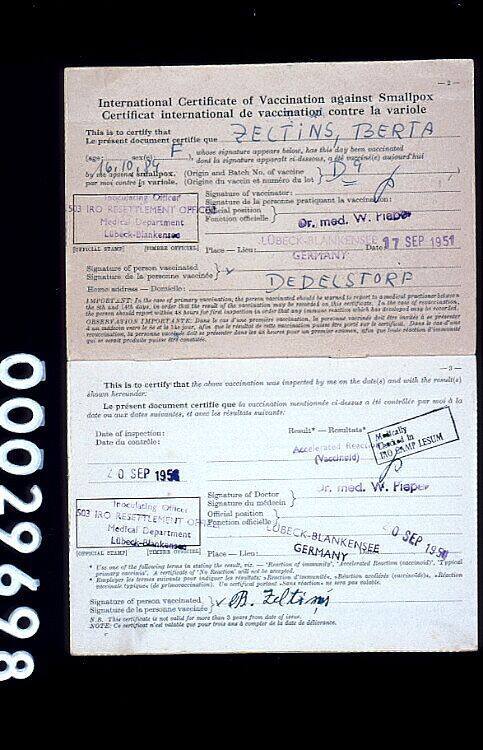 — 2 —
International Certificate of Vaccination against Smallpox
Certificat international de vaccination contre la variole
This is to certify that
Le présent document certifie que ZELTINS, BERTA
(age: 16.10.84 sex(e): F), whose signature appears below, has this day been vaccinated
dont la signature apparaît ci-dessous, a été vacciné(e) aujourd'hui
by me against smallpox. (Origin and Batch No. of vaccine
par moi contre la variole. (Origine du vaccin et numéro du lot)
Signature of vaccinator:
Signature de la personne pratiquant la vaccination:
Inoculating Officer
503 IRO RESETTLEMENT OFFICE
Medical Department
Lübeck-Blankensee
Official position
Fonction officielle
Dr. med. W. Pieper
LÜBECK-BLANKENSEE
GERMANY
[OFFICIAL STAMP] [TIMBRE OFFICIEL] Place — Lieu: Date: 17 SEP 1951
Signature of person vaccinated
Signature de la personne vaccinée
Home address — Domicile: DEDELSTORP
IMPORTANT: In the case of primary vaccination, the person vaccinated should be warned to report to a medical practitioner between
the 8th and 14th days, in order that the result of the vaccination may be recorded on this certificate. In the case of revaccination,
the person should report within 48 hours for first inspection in order that any immune reaction which has developed may be recorded.
OBSERVATION IMPORTANTE: Dans le cas d'une première vaccination, la personne vaccinée doit être invitée à se présenter
à un médecin entre le 8e et le 14e jour, afin que le résultat de cette vaccination puisse être porté sur le certificat. Dans le cas d'une
revaccination, la personne devrait se présenter dans les 48 heures pour un premier examen, afin que toute réaction d'immunité
qui se serait produite puisse être constatée.
— 3 —
This is to certify that the above vaccination was inspected by me on the date(s) and with the result(s)
shown hereunder:
Le présent document certifie que la vaccination mentionnée ci-dessus a été contrôlée par moi à la
date ou aux dates suivantes, et avec les résultats suivants:
Date of inspection:
Date du contrôle:
Result* — Resultats*
Accelerated Reaction
(Vaccinoid)
Medically
Checked in
IRO CAMP LESUM
20 SEP 1951
Dr. med. W. Pieper
Signature of Doctor
Signature du médecin
Inoculating Officer
503 IRO RESETTLEMENT OFFICE
Medical Department
Lübeck-Blankensee
Official position
Fonction officielle
LÜBECK-BLANKENSEE
GERMANY
20 SEP 1951
[OFFICIAL STAMP] [TIMBRE OFFICIEL] Place — Lieu:
* Use one of the following terms in stating the result, viz. — 'Reaction of immunity', 'Accelerated Reaction (vaccinoid)', 'Typical
primary vaccinia'. A certificate of 'No Reaction' will not be accepted.
* Employer les termes suivants pour indiquer les résultats: «Réaction d'immunité», «Réaction accélérée (vaccinoïde)», «Réaction
vaccinale typique (de primovaccination)». Un certificat portant «Sans réaction» ne sera pas valable.
Signature of person vaccinated
Signature de la personne vaccinée B. Zeltiņi
N.B. This certificate is not valid for more than 3 years from date of issue.
NOTE: Ce certificat n'est valable que pour trois ans à compter de la date de délivrance.
00029698